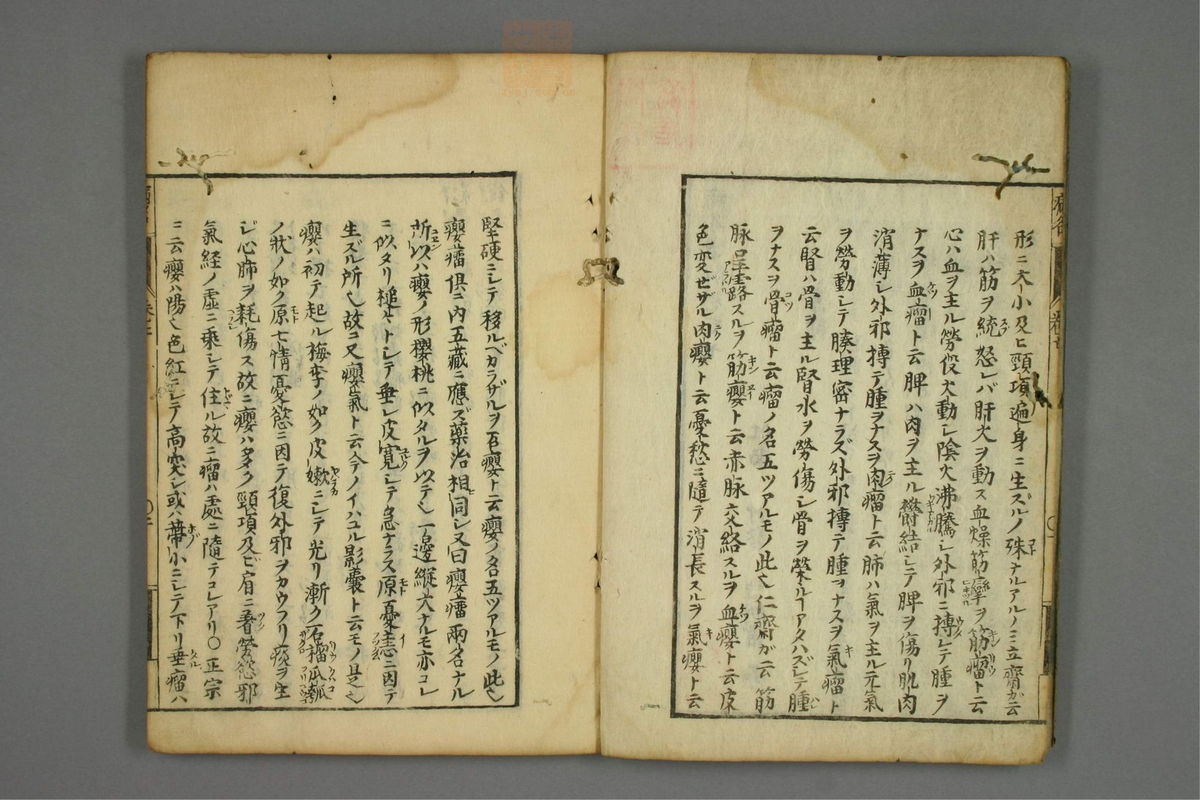 形ニ大小及ヒ頸項遍身ニ生ズルノ殊ナルアルノミ立齋ガ云
肝ハ筋ヲ統怒レバ肝火ヲ動ス血燥筋攣ヲ筋瘤ト云
心ハ血ヲ主ル勞役火動シ陰火沸騰シ外邪ニ搏レテ腫ヲ
ナスヲ血瘤ト云脾ハ肉ヲ主ル欝結シテ脾ヲ傷リ肌肉
消薄シ外邪搏テ腫ヲナスヲ肉瘤ト云肺ハ氣ヲ主ル元氣
ヲ勞動シテ腠理密ナラズ外邪搏テ腫ヲナスヲ氣瘤ト
云腎ハ骨ヲ主ル腎水ヲ勞傷シ骨ヲ榮ルヿアタハズシテ腫
ヲナスヲ骨瘤ト云瘤ノ名五ツアルモノ此也仁齋ガ云筋
脉呈露スルヲ筋癭ト云赤脉交絡スルヲ血癭ト云皮
色変ゼザル肉癭ト云憂愁ニ隨テ消長スルヲ氣癭ト云
堅硬ニシテ移ルベカラザルヲ石癭ト云癭ノ名五ツアルモノ此也
癭瘤俱ニ内五藏ニ應ズ藥治相同シ又曰癭瘤兩名ナル
所以ハ癭ノ形櫻桃ニ似タルヲ以テ也一邊縱大ナルモ亦コレ
ニ似タリ槌々トシテ垂レ皮寛シテ急ナラス原憂恚ニ因テ
生ズル所也故ニ又癭氣ト云今ノイハユル影囊ト云モノ是也
癭ハ初テ起ル梅李ノ如ク皮嫰ニシテ光リ漸ク石榴瓜瓠
ノ状ノ如ク原七情憂慾ニ因テ復外邪ヲカウフリ痰ヲ生
ジ心肺ヲ耗傷ス故ニ癭ハ多ク頸項及ビ肩ニ著勞慾邪
氣経ノ虛ニ乘シテ住ル故ニ瘤ハ處ニ隨テコレアリ○正宗
ニ云癭ハ陽也色紅ニシテ高突シ或ハ蔕小ニシテ下リ垂瘤ハ